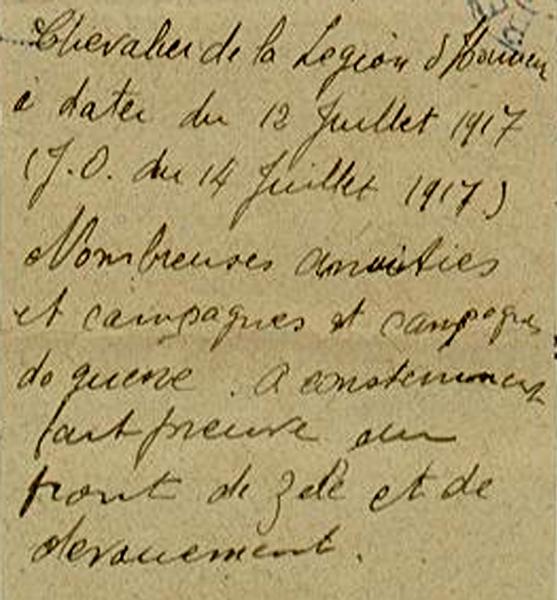 Chevalier de la Legion d'Honneur
à dater du 12 Juillet 1917
(J.O. du 14 Juillet 1917)
Nombreuses annuités
et campagnes et campagnes
de guerre. A constamment
fait preuve au
front de zèle et de
devouement.